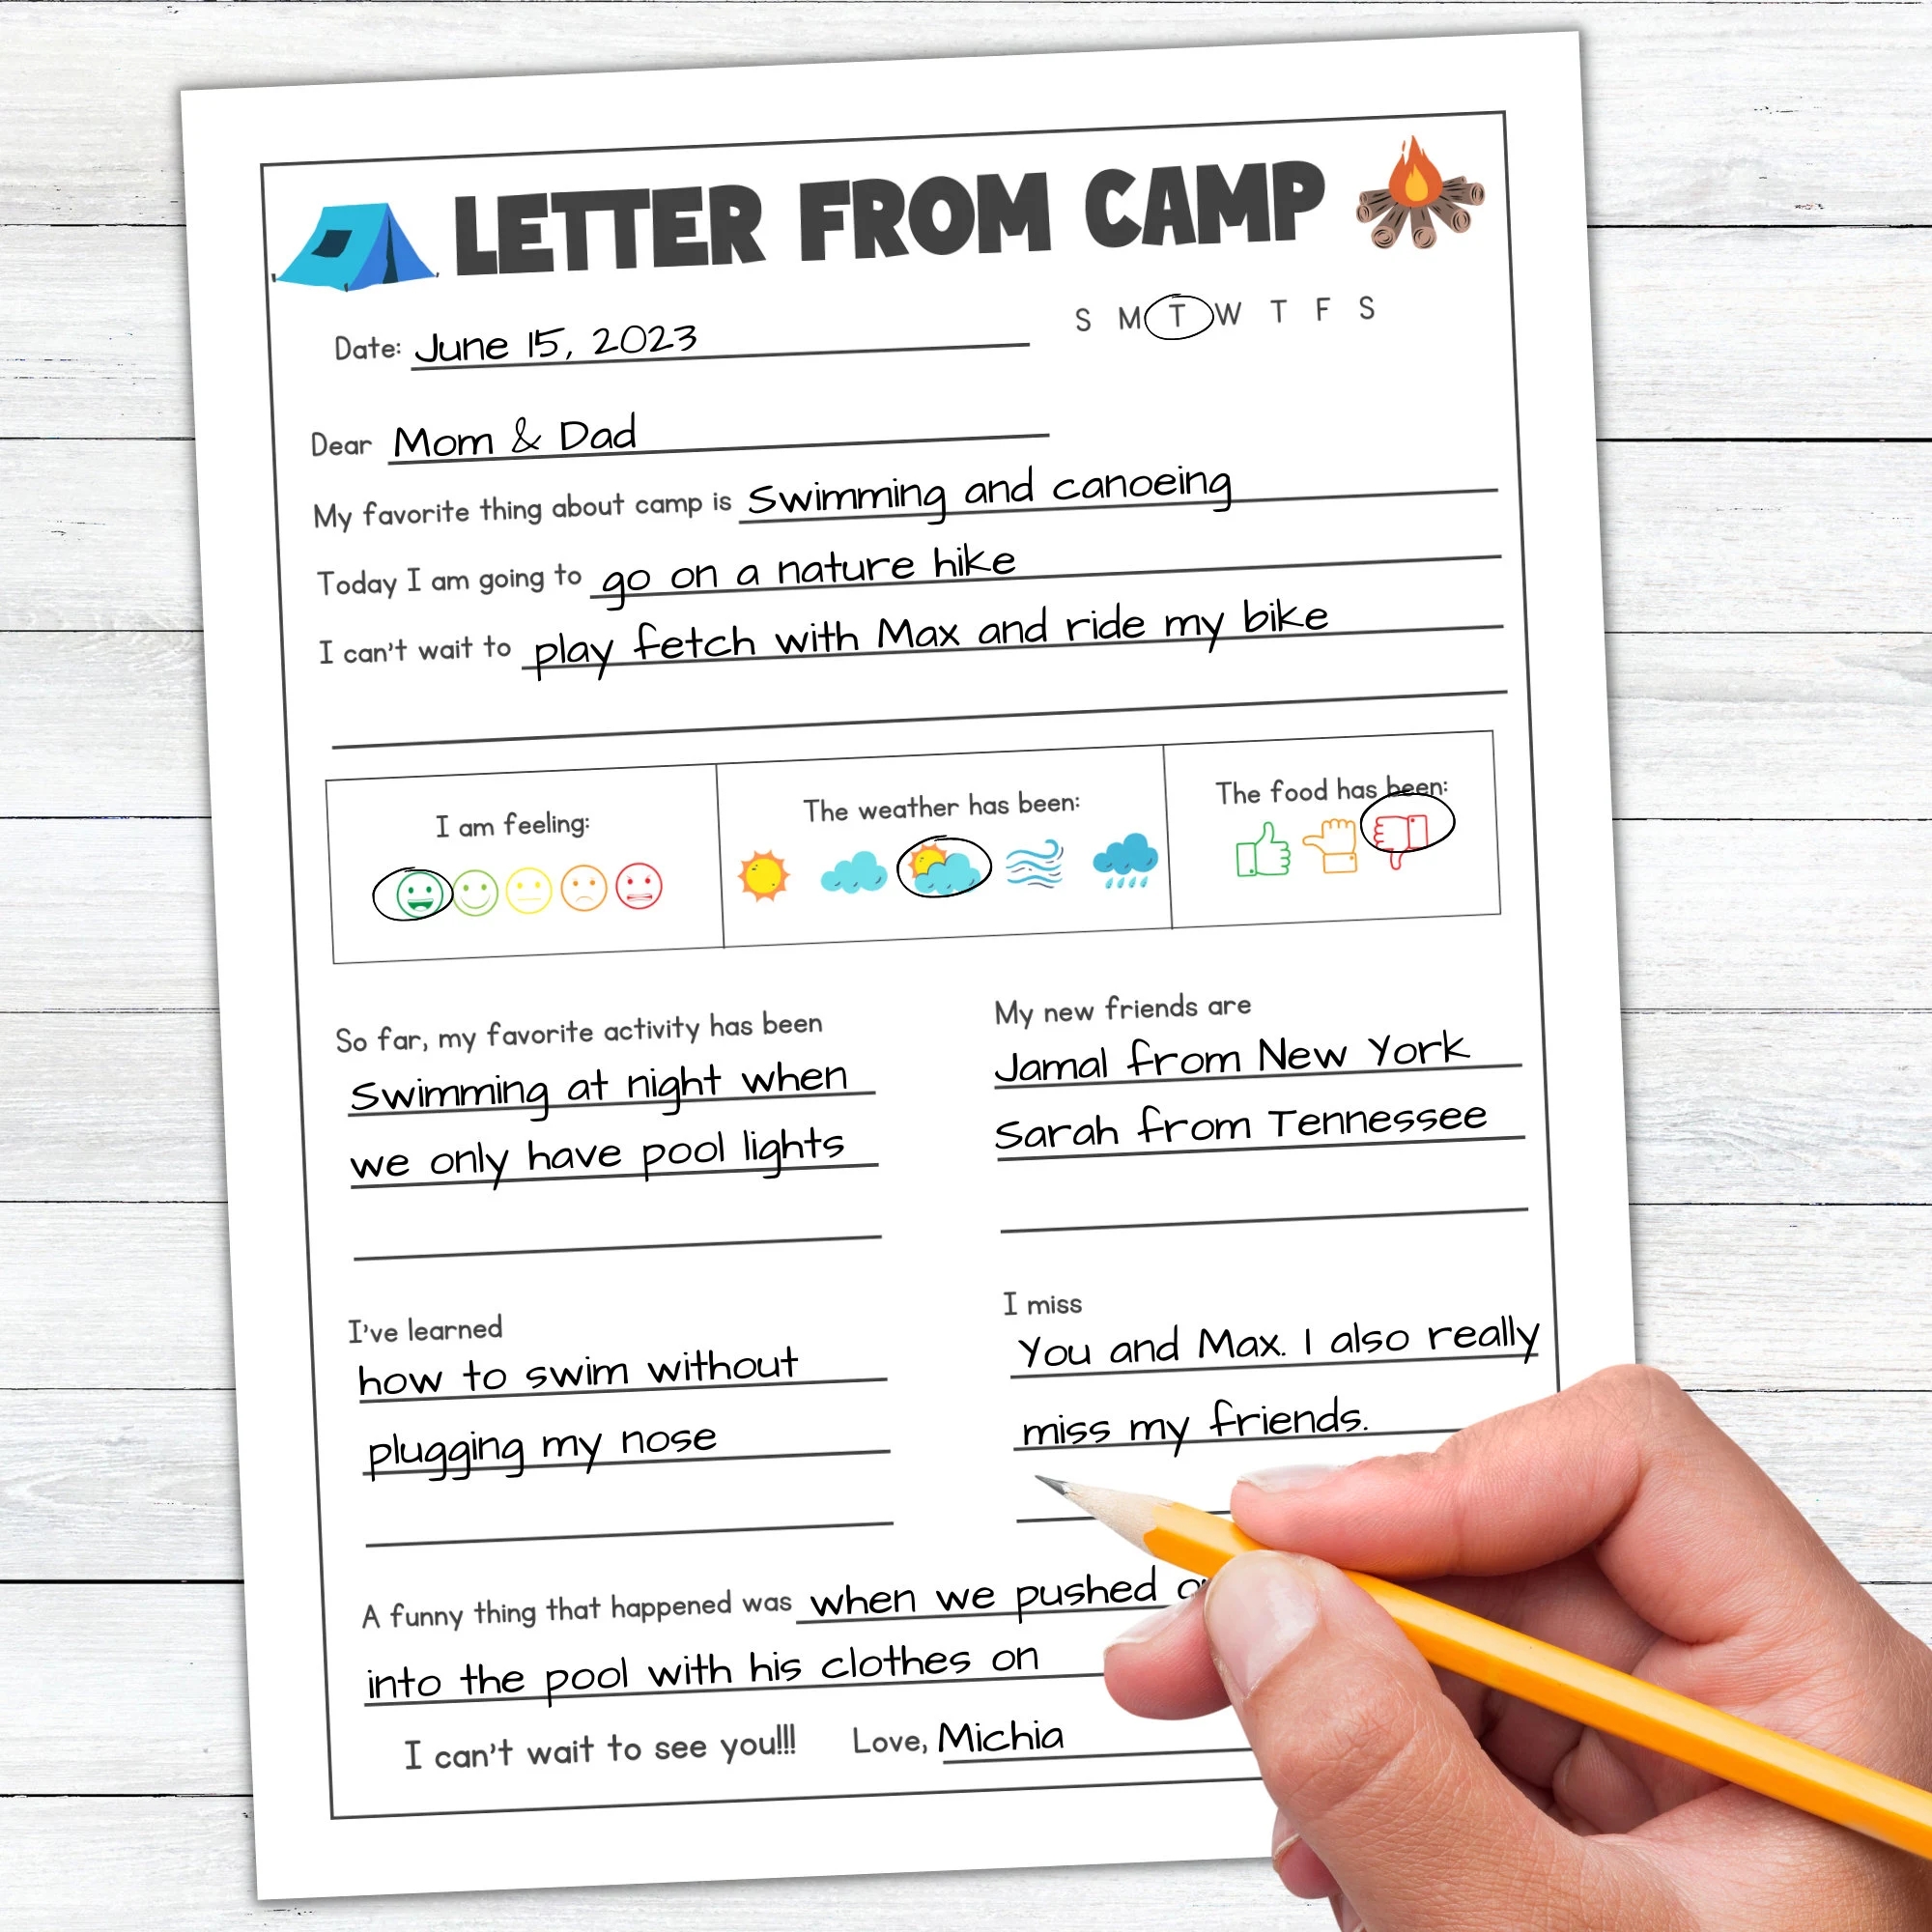 LETTER FROM CAMP
Date: June 15, 2023 S M T W T F S
Dear Mom & Dad
My favorite thing about camp is Swimming and canoeing
Today I am going to go on a nature hike
I can't wait to play fetch with Max and ride my bike
I am feeling:
The weather has been:
The food has been:
So far, my favorite activity has been
Swimming at night when
we only have pool lights
My new friends are
Jamal from New York
Sarah from Tennessee
I've learned
how to swim without
plugging my nose
I miss
You and Max. I also really
miss my friends.
A funny thing that happened was when we pushed
into the pool with his clothes on
I can't wait to see you!!! Love, Michia